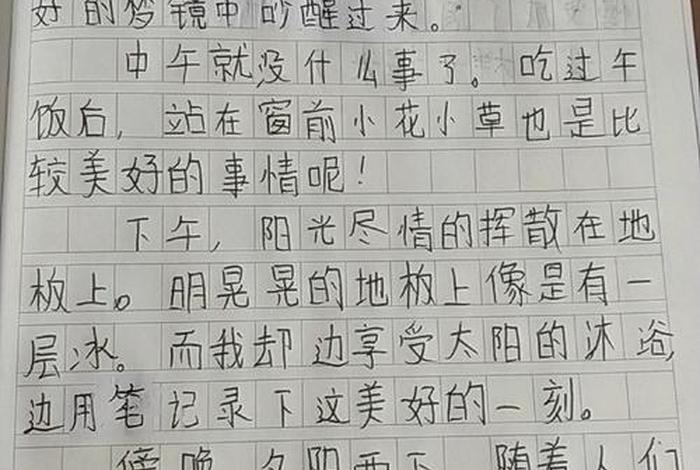 好的梦镜中吵醒过来。
中午就没什么事了。吃过午
饭后，站在窗前小花小草也是比
较美好的事情呢！
下午，阳光尽情的挥散在地
板上。明晃晃的地板上像是有一
层冰。而我却边享受太阳的沐浴，
边用笔记录下这美好的一刻。
傍晚，夕阳西下，随着人们